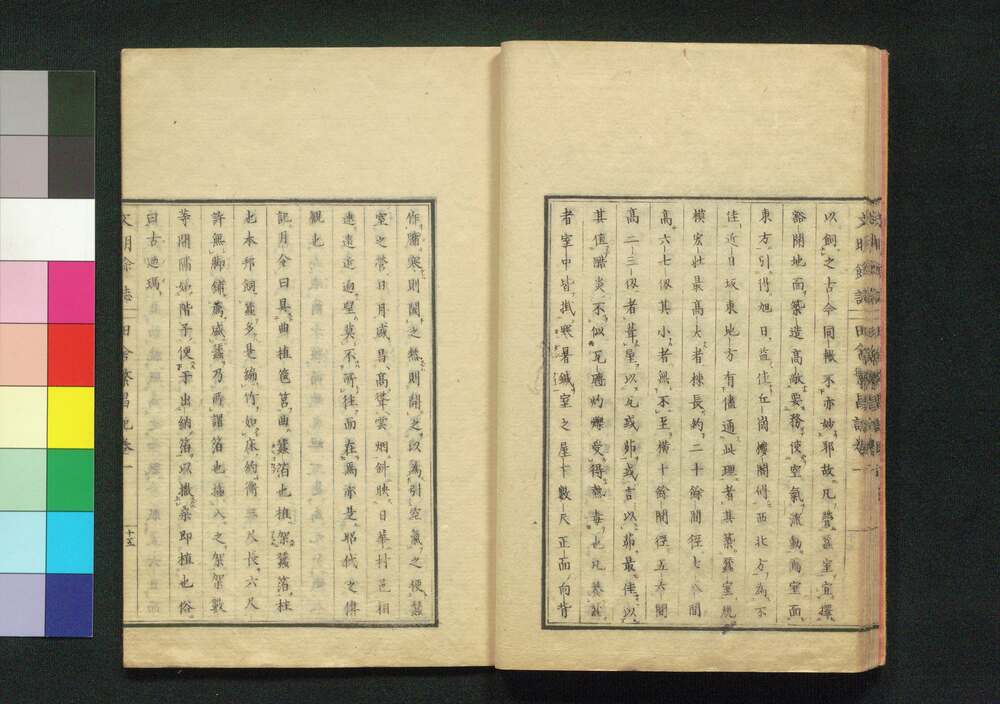 以飼之古今同轍不亦妙邪故凡營蠶室宜擇
豁開地面築造高敞要務使空氣流動為室面
東方引得旭日益佳丘崗西北方為不
佳近日坂東地方有儘通此理者其築蠶室規
模宏壯最高大者棟長約二十餘間徑七八間
高六七仭其小者無不至橫十餘間徑五六間
高二三仭者葺屋以瓦或茆或言以茆最佳以
其值酷炎不似瓦應灼爍受得熱毒也凡養蠶
者室中皆挑寒暑鍼室之屋下數尺正面向背
作牖寒則閉之熱則開之以為引空氣之便蠶
室之營日月盛昌高聳雲烟斜映日華村邑相
連遠近遍望莫不所往而在焉亦是昭代之偉
觀也
記月令曰具曲植籧筥曲蠶箔也植架蠶箔柱
也本邦飼蠶多是編竹如床約濶三尺長六尺
許無脚鋪薦盛蠶乃所謂箔也插入之架架數
等間隔如階子便于出納箔以撒桑即植也俗
曰古迺瑪
文明餘誌 田舍繁昌記卷一 十五